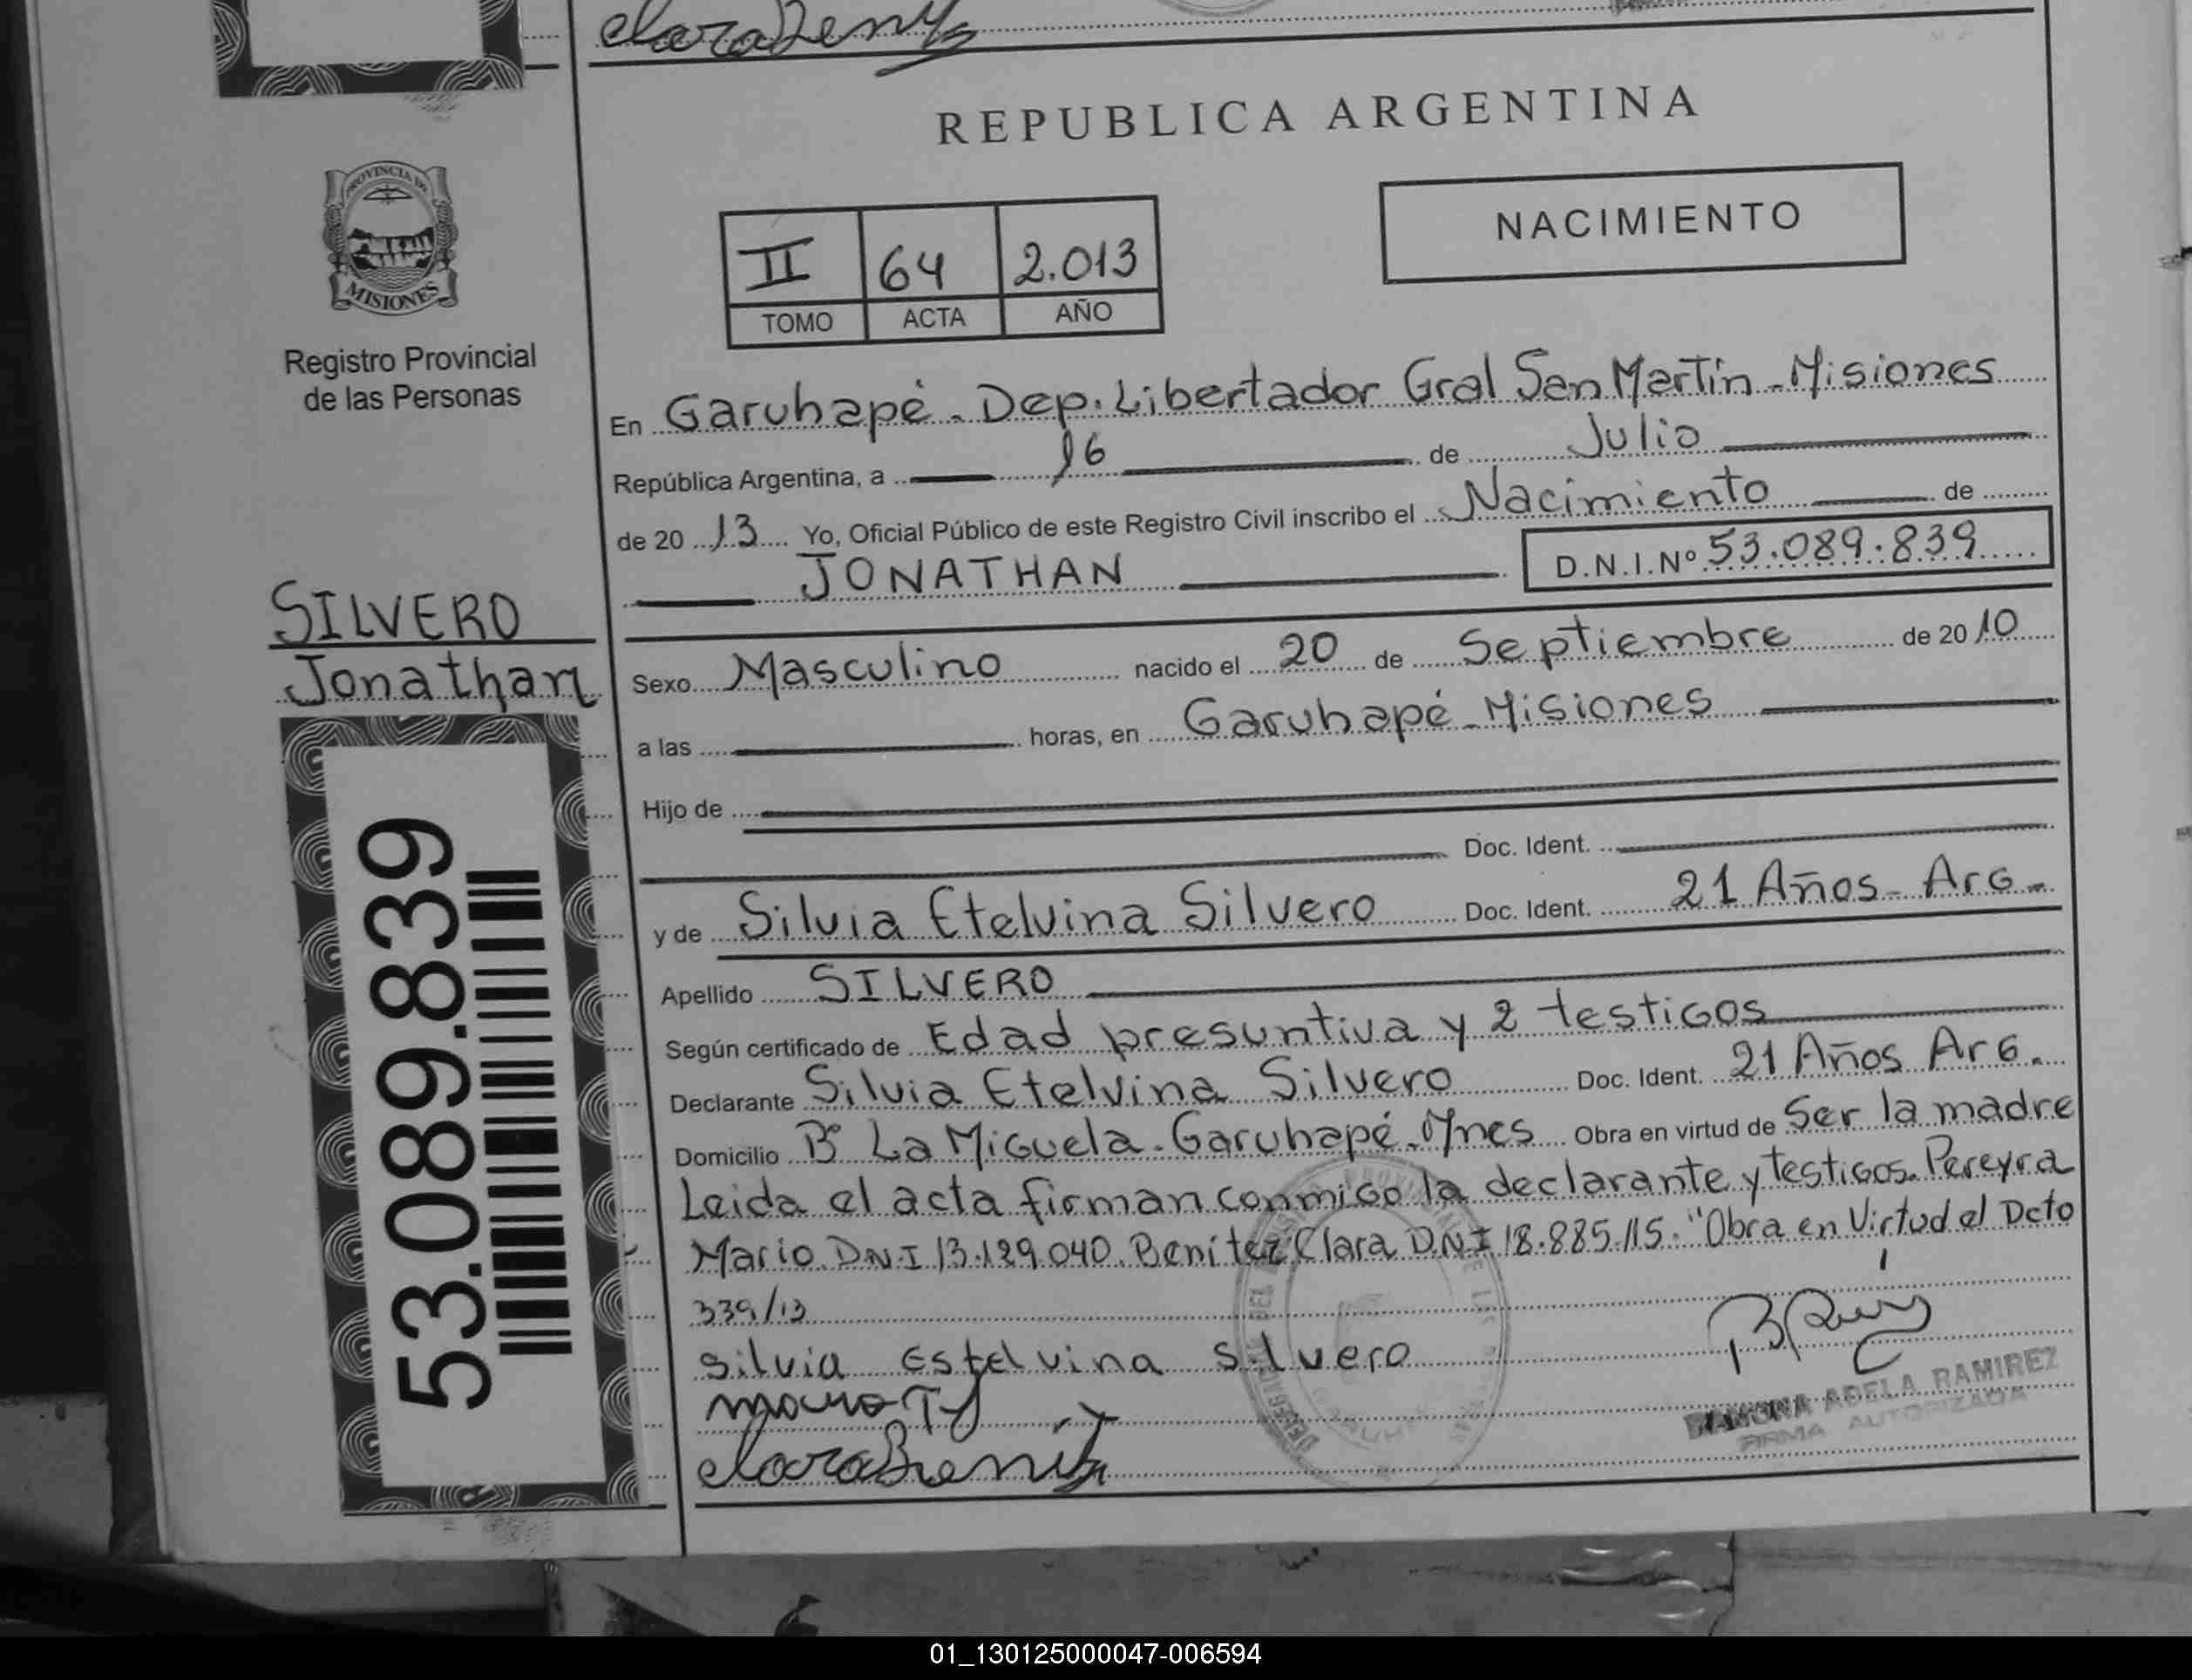 REPUBLICA ARGENTINA
NACIMIENTO
II 64 2.013
TOMO ACTA AÑO
PROVINCIA DE
MISIONES
Registro Provincial
de las Personas
SILVERO
Jonathan
53.089.839
En Garuhapé - Dep. Libertador Gral San Martín - Misiones
República Argentina, a 16 de Julio
de 20 13 Yo, Oficial Público de este Registro Civil inscribo el Nacimiento de
JONATHAN D.N.I.Nº 53.089.839
Sexo Masculino nacido el 20 de Septiembre de 20 10
a las horas, en Garuhapé - Misiones
Hijo de
Doc. Ident.
y de Silvia Etelvina Silvero Doc. Ident. 21 Años - Arg -
Apellido SILVERO
Según certificado de Edad presuntiva y 2 testigos
Declarante Silvia Etelvina Silvero Doc. Ident. 21 Años Arg.
Domicilio Bº La Miguela - Garuhapé - Mnes Obra en virtud de Ser la madre
Leida el acta firman conmigo la declarante y testigos. Pereyra
Mario. D.N.I 13.129.040. Benitez Clara D.N.I 18.885.115. "Obra en Virtud el Dcto
339/13
silvia Estelvina silvero
RAMONA ADELA RAMIREZ
FIRMA AUTORIZADA
01_130125000047-006594